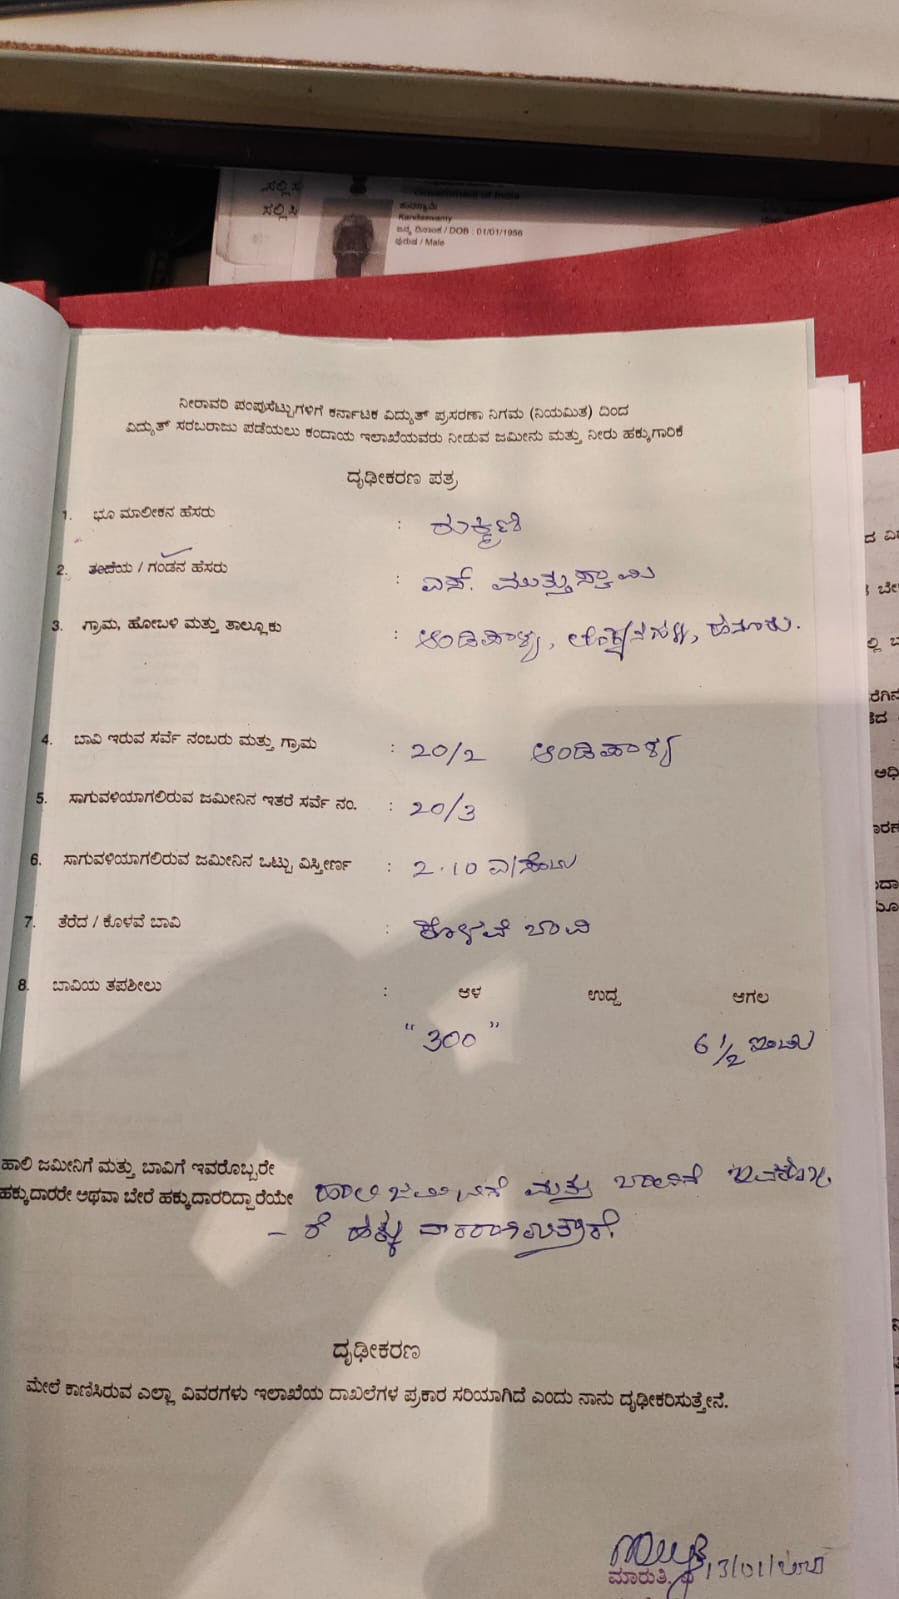 ಸಲ್ಲಿಸ
ಸಲ್ಲಿಸಿ
Government of India
ಕಂದಸ್ವಾಮಿ
Kandaswamy
ಜನ್ಮ ದಿನಾಂಕ / DOB : 01/01/1956
ಪುರುಷ / Male
ನೀರಾವರಿ ಪಂಪುಸೆಟ್ಟುಗಳಿಗೆ ಕರ್ನಾಟಕ ವಿದ್ಯುತ್ ಪ್ರಸರಣಾ ನಿಗಮ (ನಿಯಮಿತ) ದಿಂದ
ವಿದ್ಯುತ್ ಸರಬರಾಜು ಪಡೆಯಲು ಕಂದಾಯ ಇಲಾಖೆಯವರು ನೀಡುವ ಜಮೀನು ಮತ್ತು ನೀರು ಹಕ್ಕುಗಾರಿಕೆ
ದೃಢೀಕರಣ ಪತ್ರ
1. ಭೂ ಮಾಲೀಕನ ಹೆಸರು : ರುಕ್ಮಣಿ
2. ತಂದೆಯ / ಗಂಡನ ಹೆಸರು : ಎಸ್. ಮುತ್ತುಸ್ವಾಮಿ
3. ಗ್ರಾಮ, ಹೋಬಳಿ ಮತ್ತು ತಾಲ್ಲೂಕು : ಆಂಡಿಪಾಳ್ಯ, ಲೊಕ್ಕನಹಳ್ಳಿ, ಹನೂರು.
4. ಬಾವಿ ಇರುವ ಸರ್ವೆ ನಂಬರು ಮತ್ತು ಗ್ರಾಮ : 20/2 ಆಂಡಿಪಾಳ್ಯ
5. ಸಾಗುವಳಿಯಾಗಲಿರುವ ಜಮೀನಿನ ಇತರೆ ಸರ್ವೆ ನಂ. : 20/3
6. ಸಾಗುವಳಿಯಾಗಲಿರುವ ಜಮೀನಿನ ಒಟ್ಟು ವಿಸ್ತೀರ್ಣ : 2.10
7. ತೆರೆದ / ಕೊಳವೆ ಬಾವಿ : ಕೊಳವೆ ಬಾವಿ
8. ಬಾವಿಯ ತಪಶೀಲು : ಆಳ ಉದ್ದ ಅಗಲ
"300" 6 1/2 ಇಂಚು
ಹಾಲಿ ಜಮೀನಿಗೆ ಮತ್ತು ಬಾವಿಗೆ ಇವರೊಬ್ಬರೇ
ಹಕ್ಕುದಾರರೇ ಅಥವಾ ಬೇರೆ ಹಕ್ಕುದಾರರಿದ್ದಾರೆಯೇ ಹಾಲಿ ಜಮೀನಿಗೆ ಮತ್ತು ಬಾವಿಗೆ ಇವರೊಬ್ಬ
- ರೆ ಹಕ್ಕುದಾರರಾಗಿರುತ್ತಾರೆ.
ದೃಢೀಕರಣ
ಮೇಲೆ ಕಾಣಿಸಿರುವ ಎಲ್ಲಾ ವಿವರಗಳು ಇಲಾಖೆಯ ದಾಖಲೆಗಳ ಪ್ರಕಾರ ಸರಿಯಾಗಿದೆ ಎಂದು ನಾನು ದೃಢೀಕರಿಸುತ್ತೇನೆ.
ಮಾರುತಿ.